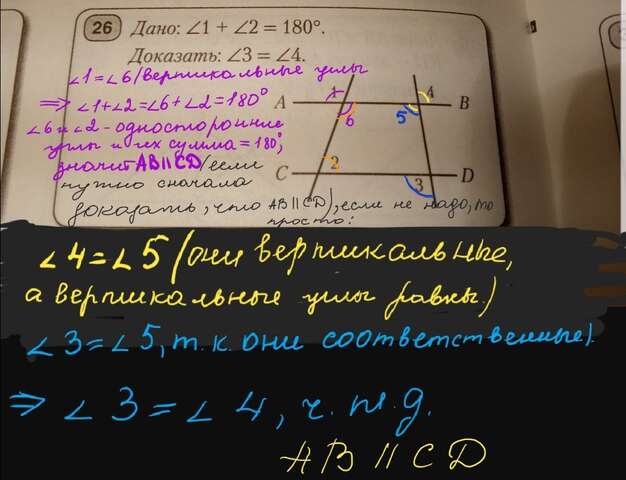 26 Дано: ∠1 + ∠2 = 180°.
Доказать: ∠3 = ∠4.
∠1 = ∠6 /вертикальные углы
⇒ ∠1+∠2=∠6+∠2=180°
∠6 и ∠2 - односторонние
углы и их сумма = 180°,
значит AB || CD /если
нужно сначала
доказать, что AB || CD), если не надо, то
просто:
A
1
6
5
4
B
C
2
3
D
∠4 = ∠5 (они вертикальные,
а вертикальные углы равны.)
∠3 = ∠5, т.к. они соответственные).
⇒ ∠3 = ∠4, ч.т.д.
AB || CD